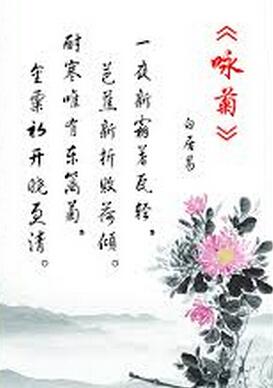 《咏菊》
白居易
一夜新霜著瓦轻，
芭蕉新折败荷倾。
耐寒唯有东篱菊，
金粟初开晓更清。